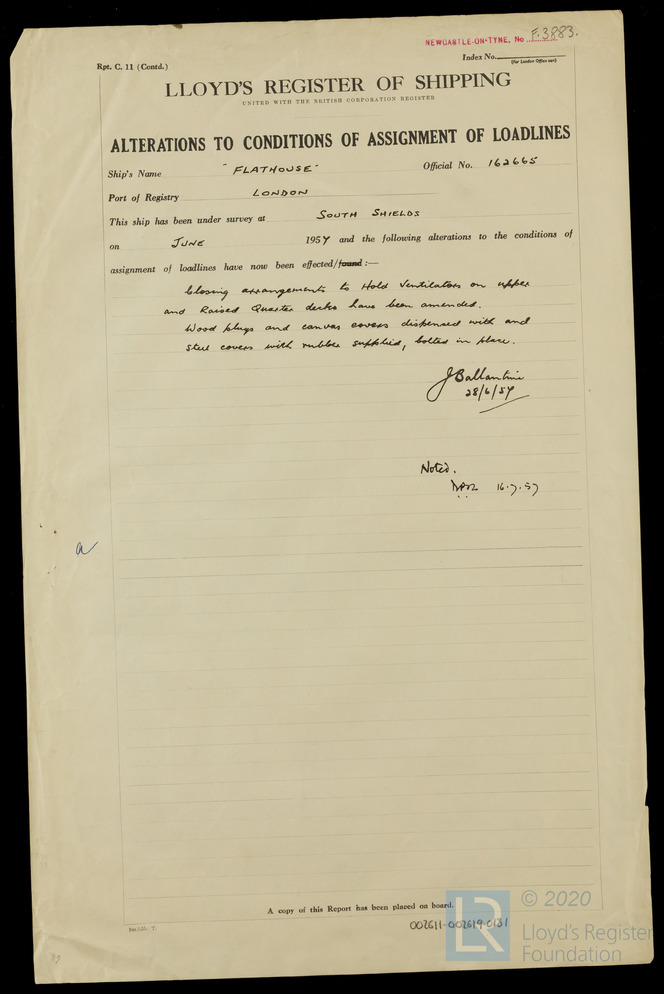 NEWCASTLE-ON-TYNE, No F.3883.
Index No.
(For London Office use)
Rpt. C. 11 (Contd.)
LLOYD'S REGISTER OF SHIPPING
UNITED WITH THE BRITISH CORPORATION REGISTER
ALTERATIONS TO CONDITIONS OF ASSIGNMENT OF LOADLINES
Ship's Name "FLATHOUSE" Official No. 162665
Port of Registry LONDON
This ship has been under survey at SOUTH SHIELDS
on JUNE 1957 and the following alterations to the conditions of
assignment of loadlines have now been effected/found :—
Closing arrangements to Hold Ventilators on upper
and Raised Quarter decks have been amended.
Wood plugs and canvas covers dispensed with and
Steel covers with rubber supplied, bolted in place.
J Ballantine
28/6/57
Noted.
16.7.57
a
A copy of this Report has been placed on board.
002611-002619-0131
LR
© 2020
Lloyd's Register
Foundation